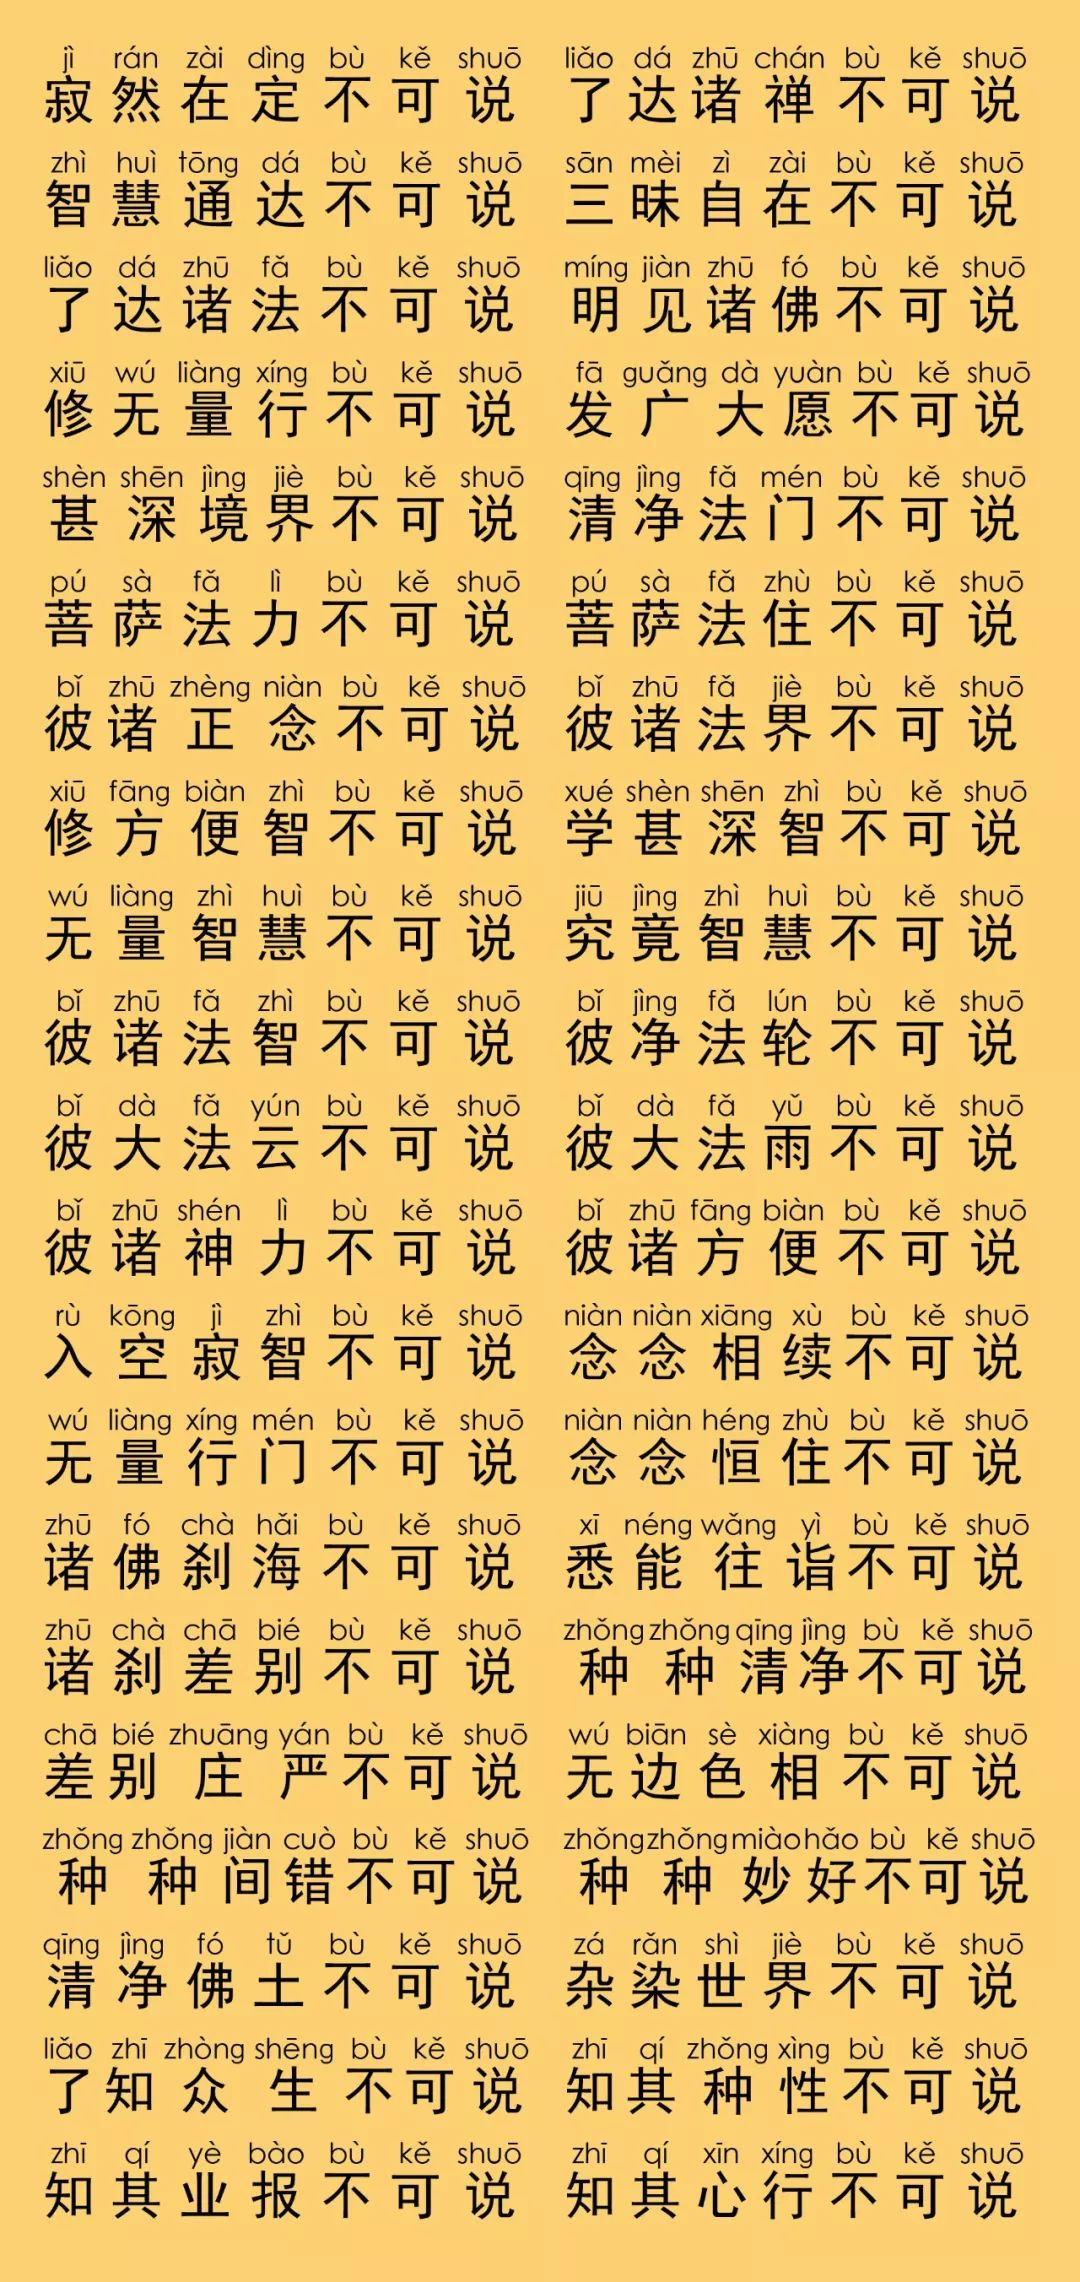 jì rán zài dìng bù kě shuō liǎo dá zhū chán bù kě shuō
寂然在定不可说 了达诸禅不可说
zhì huì tōng dá bù kě shuō sān mèi zì zài bù kě shuō
智慧通达不可说 三昧自在不可说
liǎo dá zhū fǎ bù kě shuō míng jiàn zhū fó bù kě shuō
了达诸法不可说 明见诸佛不可说
xiū wú liàng xíng bù kě shuō fā guǎng dà yuàn bù kě shuō
修无量行不可说 发广大愿不可说
shèn shēn jìng jiè bù kě shuō qīng jìng fǎ mén bù kě shuō
甚深境界不可说 清净法门不可说
pú sà fǎ lì bù kě shuō pú sà fǎ zhù bù kě shuō
菩萨法力不可说 菩萨法住不可说
bǐ zhū zhèng niàn bù kě shuō bǐ zhū fǎ jiè bù kě shuō
彼诸正念不可说 彼诸法界不可说
xiū fāng biàn zhì bù kě shuō xué shèn shēn zhì bù kě shuō
修方便智不可说 学甚深智不可说
wú liàng zhì huì bù kě shuō jiū jìng zhì huì bù kě shuō
无量智慧不可说 究竟智慧不可说
bǐ zhū fǎ zhì bù kě shuō bǐ jìng fǎ lún bù kě shuō
彼诸法智不可说 彼净法轮不可说
bǐ dà fǎ yún bù kě shuō bǐ dà fǎ yǔ bù kě shuō
彼大法云不可说 彼大法雨不可说
bǐ zhū shén lì bù kě shuō bǐ zhū fāng biàn bù kě shuō
彼诸神力不可说 彼诸方便不可说
rù kōng jì zhì bù kě shuō niàn niàn xiāng xù bù kě shuō
入空寂智不可说 念念相续不可说
wú liàng xíng mén bù kě shuō niàn niàn héng zhù bù kě shuō
无量行门不可说 念念恒住不可说
zhū fó chà hǎi bù kě shuō xī néng wǎng yì bù kě shuō
诸佛刹海不可说 悉能往诣不可说
zhū chà chā bié bù kě shuō zhǒng zhǒng qīng jìng bù kě shuō
诸刹差别不可说 种种清净不可说
chā bié zhuāng yán bù kě shuō wú biān sè xiàng bù kě shuō
差别庄严不可说 无边色相不可说
zhǒng zhǒng jiàn cuò bù kě shuō zhǒng zhǒng miào hǎo bù kě shuō
种种间错不可说 种种妙好不可说
qīng jìng fó tǔ bù kě shuō zá rǎn shì jiè bù kě shuō
清净佛土不可说 杂染世界不可说
liǎo zhī zhòng shēng bù kě shuō zhī qí zhǒng xìng bù kě shuō
了知众生不可说 知其种性不可说
zhī qí yè bào bù kě shuō zhī qí xīn xíng bù kě shuō
知其业报不可说 知其心行不可说